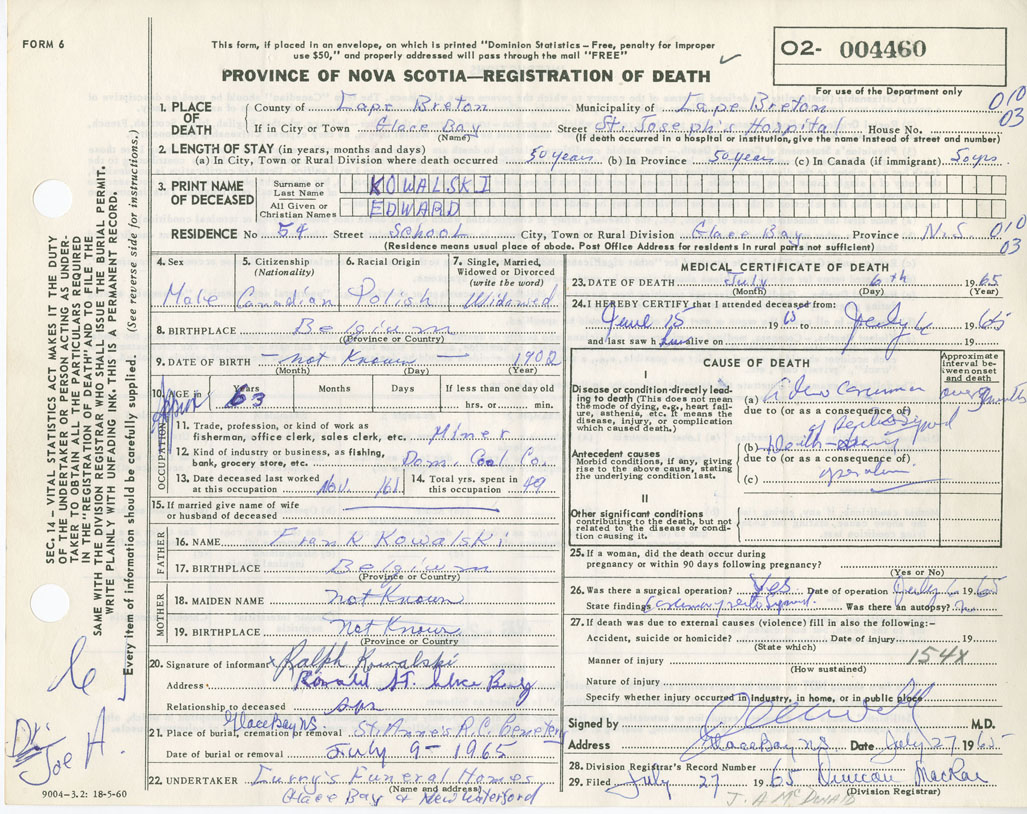 FORM 6
This form, if placed in an envelope, on which is printed "Dominion Statistics – Free, penalty for improper
use $50," and properly addressed will pass through the mail "FREE"
02- 004460
PROVINCE OF NOVA SCOTIA—REGISTRATION OF DEATH
For use of the Department only
010
03
1. PLACE OF DEATH
County of Cape Breton Municipality of Cape Breton
If in City or Town Glace Bay Street St. Joseph's Hospital House No.
(Name) (If death occurred in a hospital or institution, give name instead of street and number)
2. LENGTH OF STAY (in years, months and days)
(a) In City, Town or Rural Division where death occurred 50 years (b) In Province 50 years (c) In Canada (if immigrant) 50 yrs
3. PRINT NAME OF DECEASED
Surname or Last Name KOWALSKI
All Given or Christian Names EDWARD
RESIDENCE No 54 Street School City, Town or Rural Division Glace Bay Province N.S
010
03
(Residence means usual place of abode. Post Office Address for residents in rural parts not sufficient)
4. Sex Male
5. Citizenship (Nationality) Canadian
6. Racial Origin Polish
7. Single, Married, Widowed or Divorced (write the word) Widowed
8. BIRTHPLACE Belgium
(Province or Country)
9. DATE OF BIRTH — not Known — 1902
(Month) (Day) (Year)
10. AGE in Years Months Days If less than one day old
approx 63 hrs. or min.
OCCUPATION
11. Trade, profession, or kind of work as
fisherman, office clerk, sales clerk, etc. Miner
12. Kind of industry or business, as fishing,
bank, grocery store, etc. Dom. Coal Co.
13. Date deceased last worked
at this occupation Nov. /61.
14. Total yrs. spent in
this occupation 49
15. If married give name of wife
or husband of deceased
FATHER
16. NAME Frank Kowalski
17. BIRTHPLACE Belgium
(Province or Country)
MOTHER
18. MAIDEN NAME not Known
19. BIRTHPLACE Not Known
(Province or Country
20. Signature of informant x Ralph Kowalski
Address Ronald St. Glace Bay
Relationship to deceased son
Glace Bay N.S.
21. Place of burial, cremation or removal St. Anne's R.C. Cemetery
Date of burial or removal July 9 - 1965
22. UNDERTAKER Curry's Funeral Homes
(Name and address)
Glace Bay & New Waterford
MEDICAL CERTIFICATE OF DEATH
23. DATE OF DEATH July 6th 1965
(Month) (Day) (Year)
24. I HEREBY CERTIFY that I attended deceased from:
June 15 1965 to July 6 1965
and last saw him alive on 19
CAUSE OF DEATH
Approximate interval between onset and death
I
Disease or condition directly leading to death (This does not mean the mode of dying, e.g., heart failure, asthenia, etc. It means the disease, injury, or complication which caused death.)
(a) Adeno carcinoma over 3 months
due to (or as a consequence of)
of rectosigmoid
Antecedent causes
Morbid conditions, if any, giving rise to the above cause, stating the underlying condition last.
(b) Death
due to (or as a consequence of)
(c) operation
II
Other significant conditions
contributing to the death, but not related to the disease or condition causing it.
25. If a woman, did the death occur during
pregnancy or within 90 days following pregnancy?
(Yes or No)
26. Was there a surgical operation? Yes Date of operation July 6 1965
State findings Carcinoma rectosigmoid. Was there an autopsy? no
27. If death was due to external causes (violence) fill in also the following:–
Accident, suicide or homicide? Date of injury 19
(State which)
154X
Manner of injury
(How sustained)
Nature of injury
Specify whether injury occurred in industry, in home, or in public place
Signed by M.D.
Address Glace Bay NS Date July 27 1965
28. Division Registrar's Record Number
29. Filed July 27 1965 Duncan MacRae
(Division Registrar)
J. A McDonald
SEC. 14 – VITAL STATISTICS ACT MAKES IT THE DUTY
OF THE UNDERTAKER OR PERSON ACTING AS UNDER-
TAKER TO OBTAIN ALL THE PARTICULARS REQUIRED
IN THE "REGISTRATION OF DEATH" AND TO FILE THE
SAME WITH THE DIVISION REGISTRAR WHO SHALL ISSUE THE BURIAL PERMIT.
WRITE PLAINLY WITH UNFADING INK. THIS IS A PERMANENT RECORD.
Every item of information should be carefully supplied. (See reverse side for instructions.)
Joe A.
9004-3.2: 18-5-60